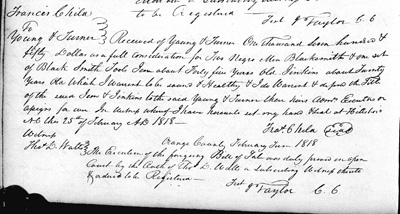 to be Registered
Test J Taylor C. C
Francis Childs
To
Young & Turner Received of Young & Turner One thousand seven hundred &
fifty Dollars as full Consideration for two Negro Men Blacksmiths & one set
of Black Smith Tools Sam about forty five years Old Jenkins about Twenty
Years Old Which I warrant to be sound & Healthy & I do Warrant & defend the Title
of the said Sam & Jenkins to the said Young & Turner their heirs Executors or
assigns for ever In Witness whereof I have hereunto set my hand & seal at Hillsboro
NC this 25th of February AD 1818
Witness
Thos D. Watts
Fras. Childs Seal
Orange County February Term 1818
The Execution of the foregoing Bill of Sale was duly proved in open
Court by the Oath of Thos D. Watts a Subscribing Witness thereto
& ordered to be Registered
Test J Taylor C. C.